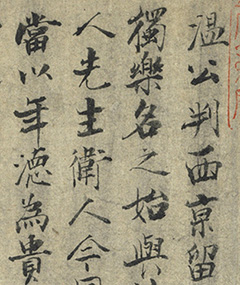 溫公判西京留
獨樂名之始與
人先生衛人今
當以年德為貴